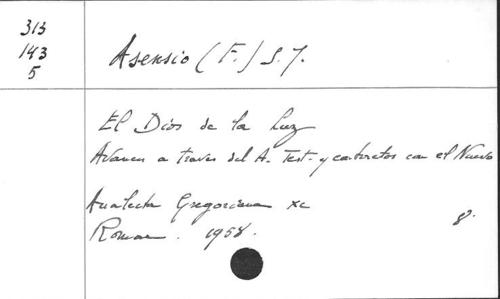 313
143
5
Asensio (F.) S.J.
El Dios de la Luz
Avances a traves del A. Test. y contactos con el Nuevo
Analecta Gregoriana XC
Romae. 1958.
8º